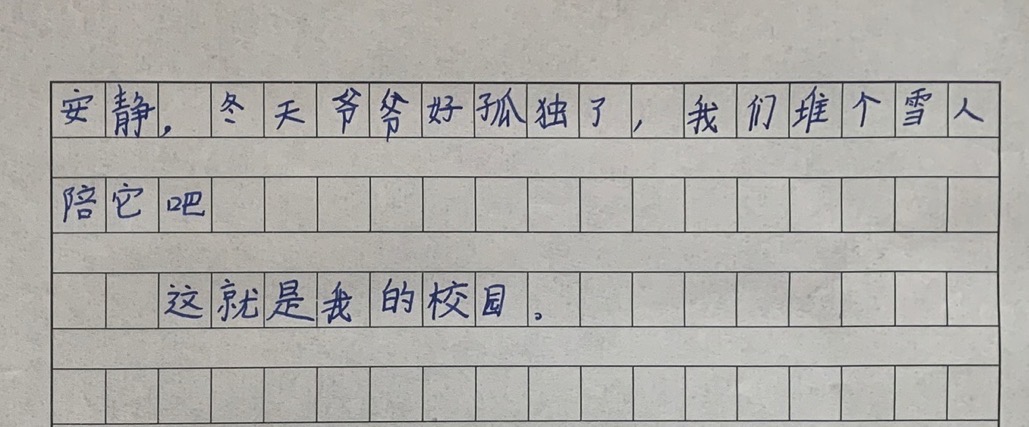 安静，冬天爷爷好孤独了，我们堆个雪人
陪它吧
这就是我的校园。